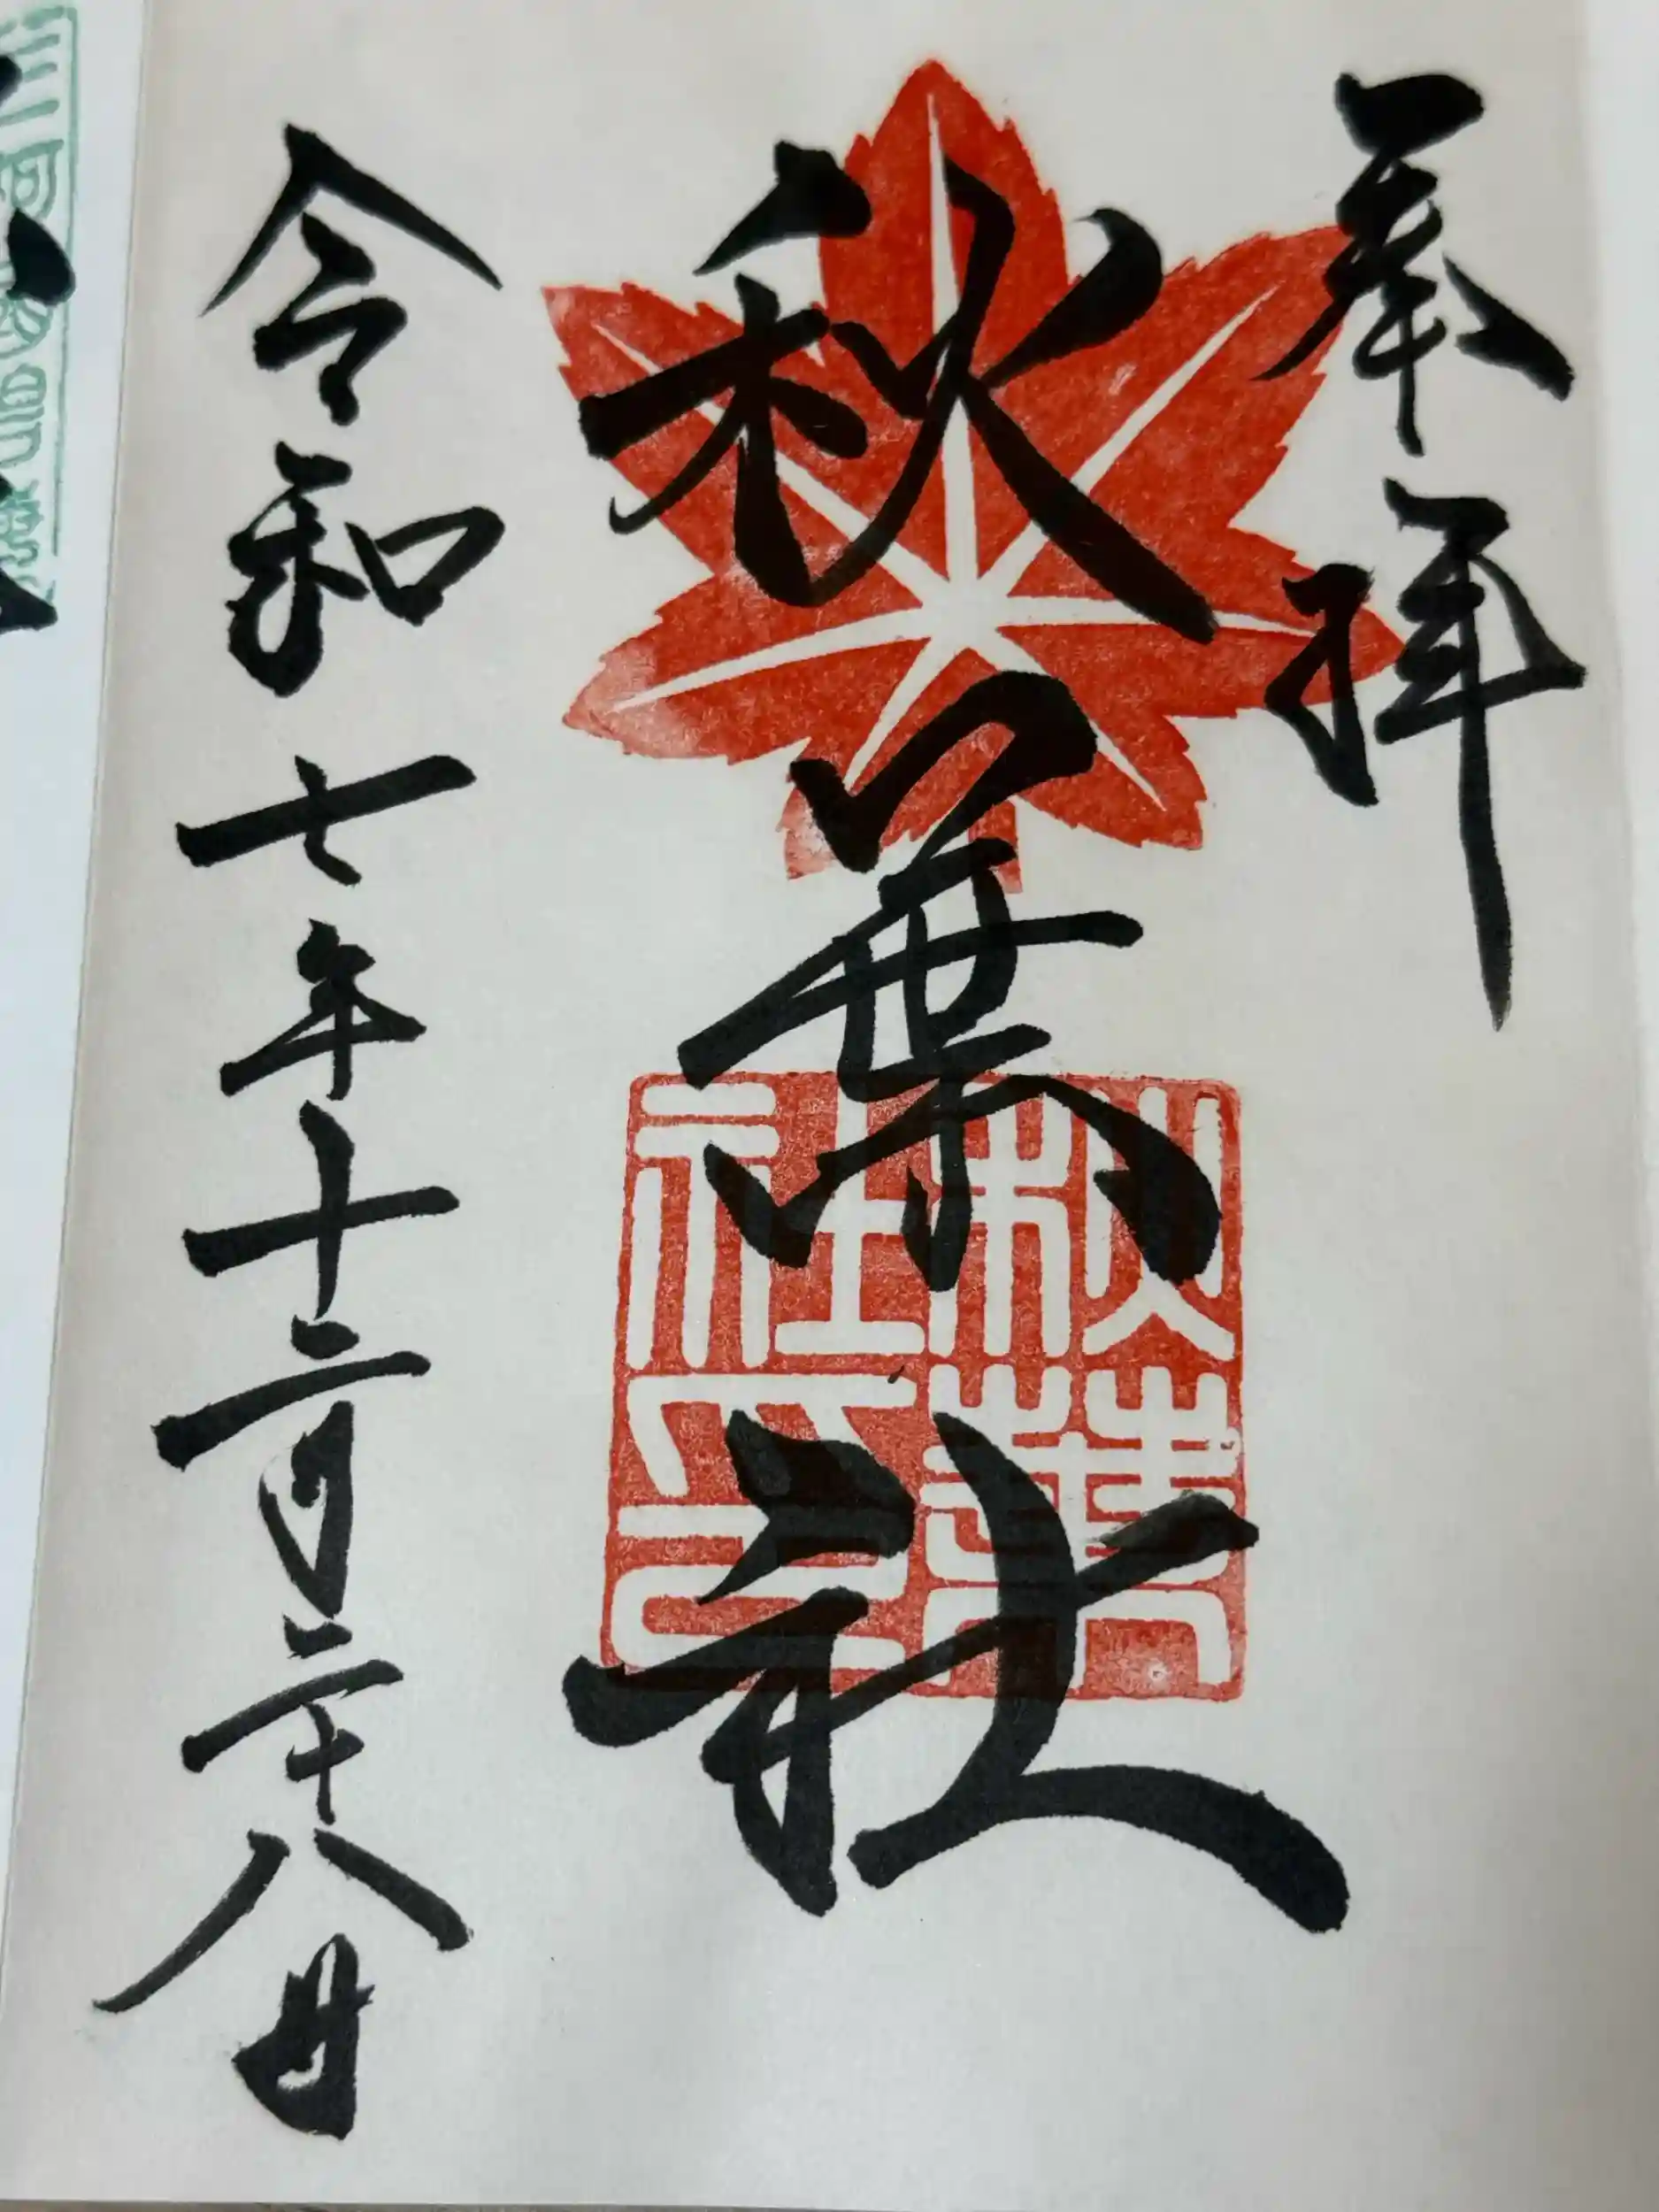 奉拝
秋葉社
秋葉
社印
令和七年十二月二十八日